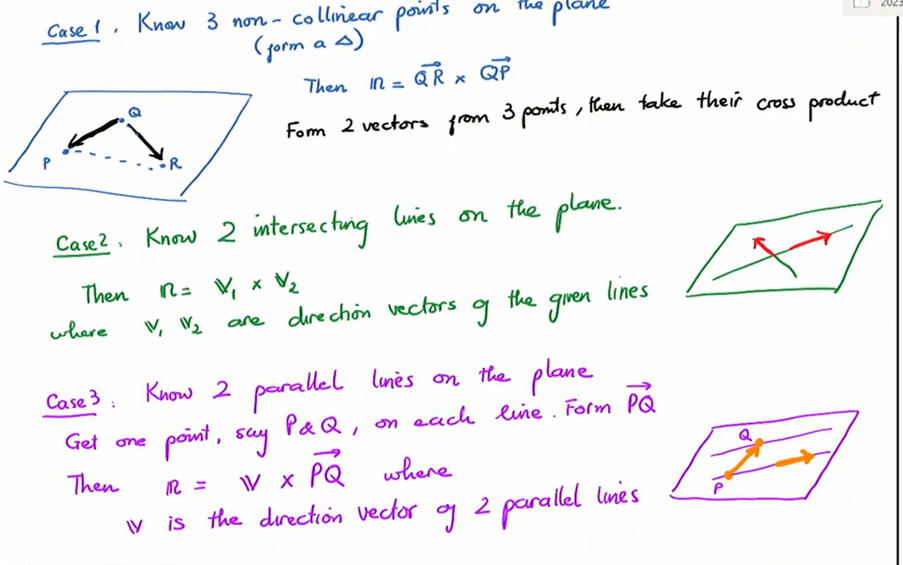 2023
Case 1. Know 3 non-collinear points on the plane
(form a Δ)
Then 𝕟 = \overrightarrow{QR} × \overrightarrow{QP}
Form 2 vectors from 3 points, then take their cross product
Q
P
R
Case 2. Know 2 intersecting lines on the plane.
Then 𝕟 = 𝕍₁ × 𝕍₂
where 𝕍₁ 𝕍₂ are direction vectors of the given lines
Case 3: Know 2 parallel lines on the plane
Get one point, say P & Q, on each line. Form \overrightarrow{PQ}
Then 𝕟 = 𝕍 × \overrightarrow{PQ} where
𝕍 is the direction vector of 2 parallel lines
Q
P